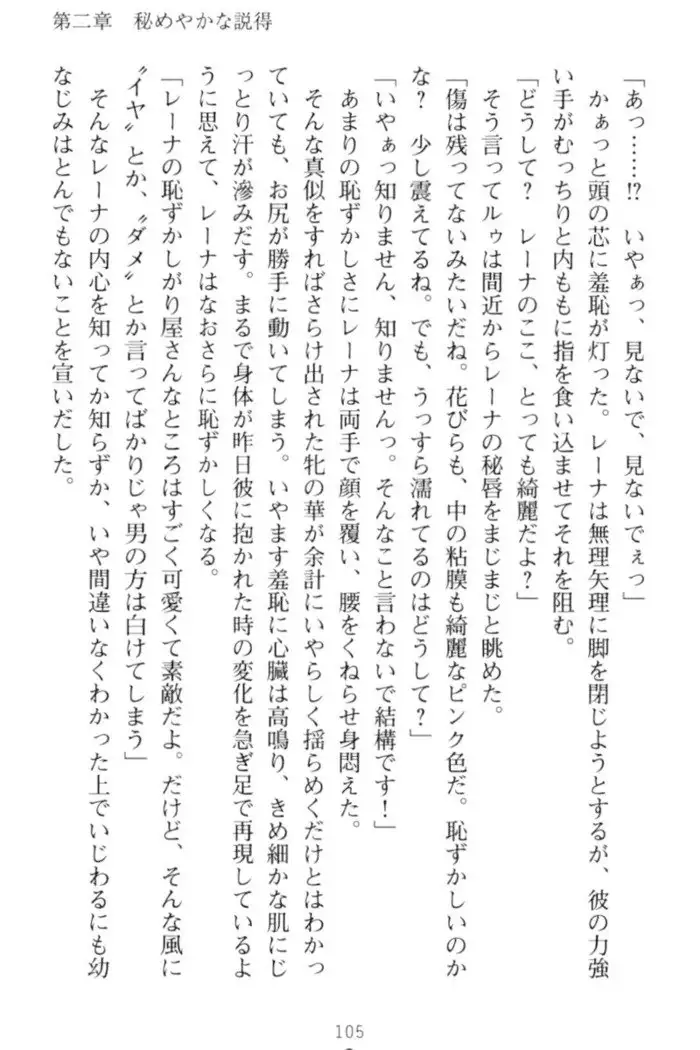 第二章　秘めやかな説得
「あっ……!?　いやぁっ、見ないで、見ないでぇっ」
　かぁっと頭の芯に羞恥が灯った。レーナは無理矢理に脚を閉じようとするが、彼の力強
い手がむっちりと内ももに指を食い込ませてそれを阻む。
「どうして？　レーナのここ、とっても綺麗だよ？」
　そう言ってルゥは間近からレーナの秘唇をまじまじと眺めた。
「傷は残ってないみたいだね。花びらも、中の粘膜も綺麗なピンク色だ。恥ずかしいのか
な？　少し震えてるね。でも、うっすら濡れてるのはどうして？」
「いやぁっ知りません、知りませんっ。そんなこと言わないで結構です！」
　あまりの恥ずかしさにレーナは両手で顔を覆い、腰をくねらせ身悶えた。
　そんな真似をすればさらけ出された牝の華が余計にいやらしく揺らめくだけとはわかっ
ていても、お尻が勝手に動いてしまう。いやます羞恥に心臓は高鳴り、きめ細かな肌にじ
っとり汗が滲みだす。まるで身体が昨日彼に抱かれた時の変化を急ぎ足で再現しているよ
うに思えて、レーナはなおさらに恥ずかしくなる。
「レーナの恥ずかしがり屋さんなところはすごく可愛くて素敵だよ。だけど、そんな風に
〝イヤ〟とか、〝ダメ〟とか言ってばかりじゃ男の方は白けてしまう」
　そんなレーナの内心を知ってか知らずか、いや間違いなくわかった上でいじわるにも幼
なじみはとんでもないことを宣いだした。
105